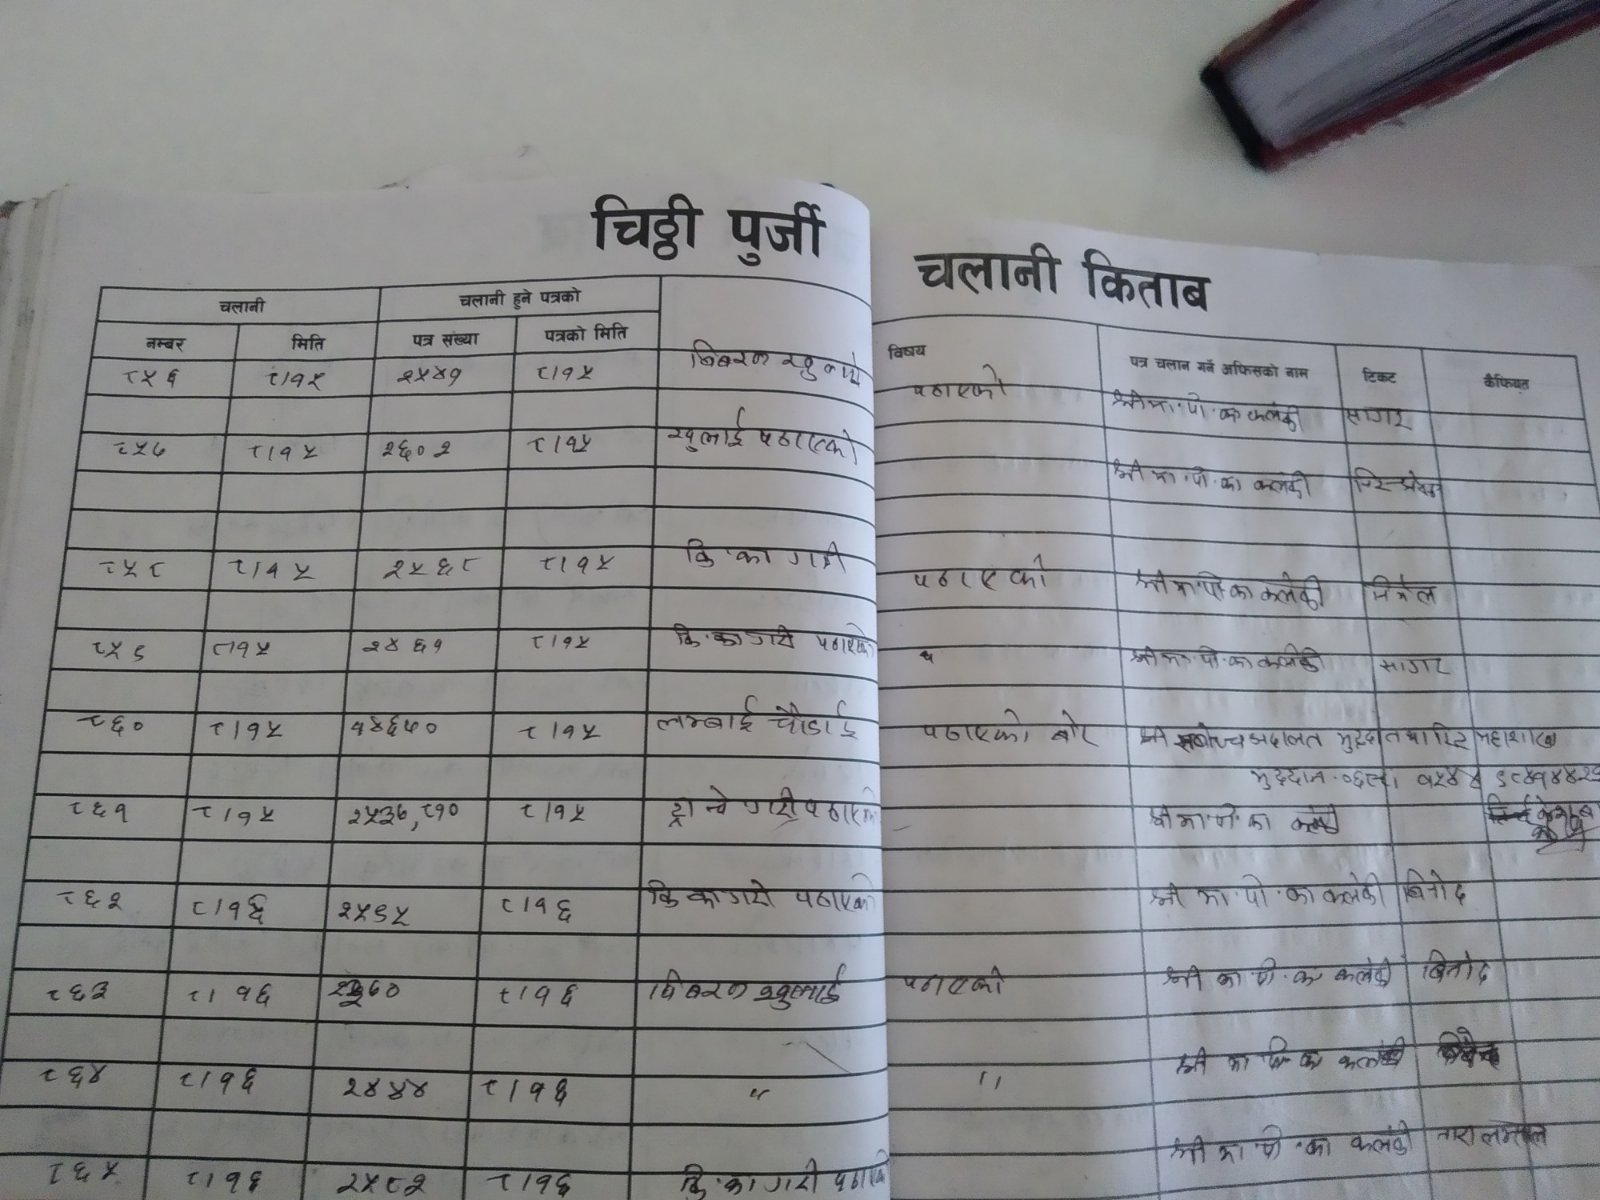 चिठ्ठी पुर्जी चलानी किताब
चलानी चलानी हुने पत्रको
नम्बर मिति पत्र संख्या पत्रको मिति विषय पत्र चलान गर्ने अफिसको नाम टिकट कैफियत
८५६ ८।१५ २५४१ ८।१५ बिबरण पठाएको श्री का.पो.का कलंकी सागर
८५७ ८।१५ २६०२ ८।१५ खुलाई पठाएको श्री का.पो.का कलंकी
८५८ ८।१५ २५६८ ८।१५ कि.का गरी पठाएको श्री का.पो.का कलंकी निर्मल
८५९ ८।१५ २४६१ ८।१५ कि.का गरी पठाएको श्री का.पो.का कलंकी सागर
८६० ८।१५ ८।१५ लम्बाई चौडाई पठाएको बारे श्री सर्वोच्च अदालत मुद्दा तथा रिट महाशाखा
८६१ ८।१५ २५३७,८१० ८।१५ गरी पठाएको श्री का.पो.का कलंकी
८६२ ८।१६ २५९५ ८।१६ कि का गरी पठाएको श्री का.पो.का कलंकी बिनोद
८६३ ८।१६ ८।१६ बिबरण खुलाई पठाएको श्री का.पो.का कलंकी बिनोद
८६४ ८।१६ २४४४ ८।१६ " " श्री का.पो.का कलंकी
८६५ ८।१६ २५८२ ८।१६ कि.का गरी पठाएको श्री का.पो.का कलंकी तारा